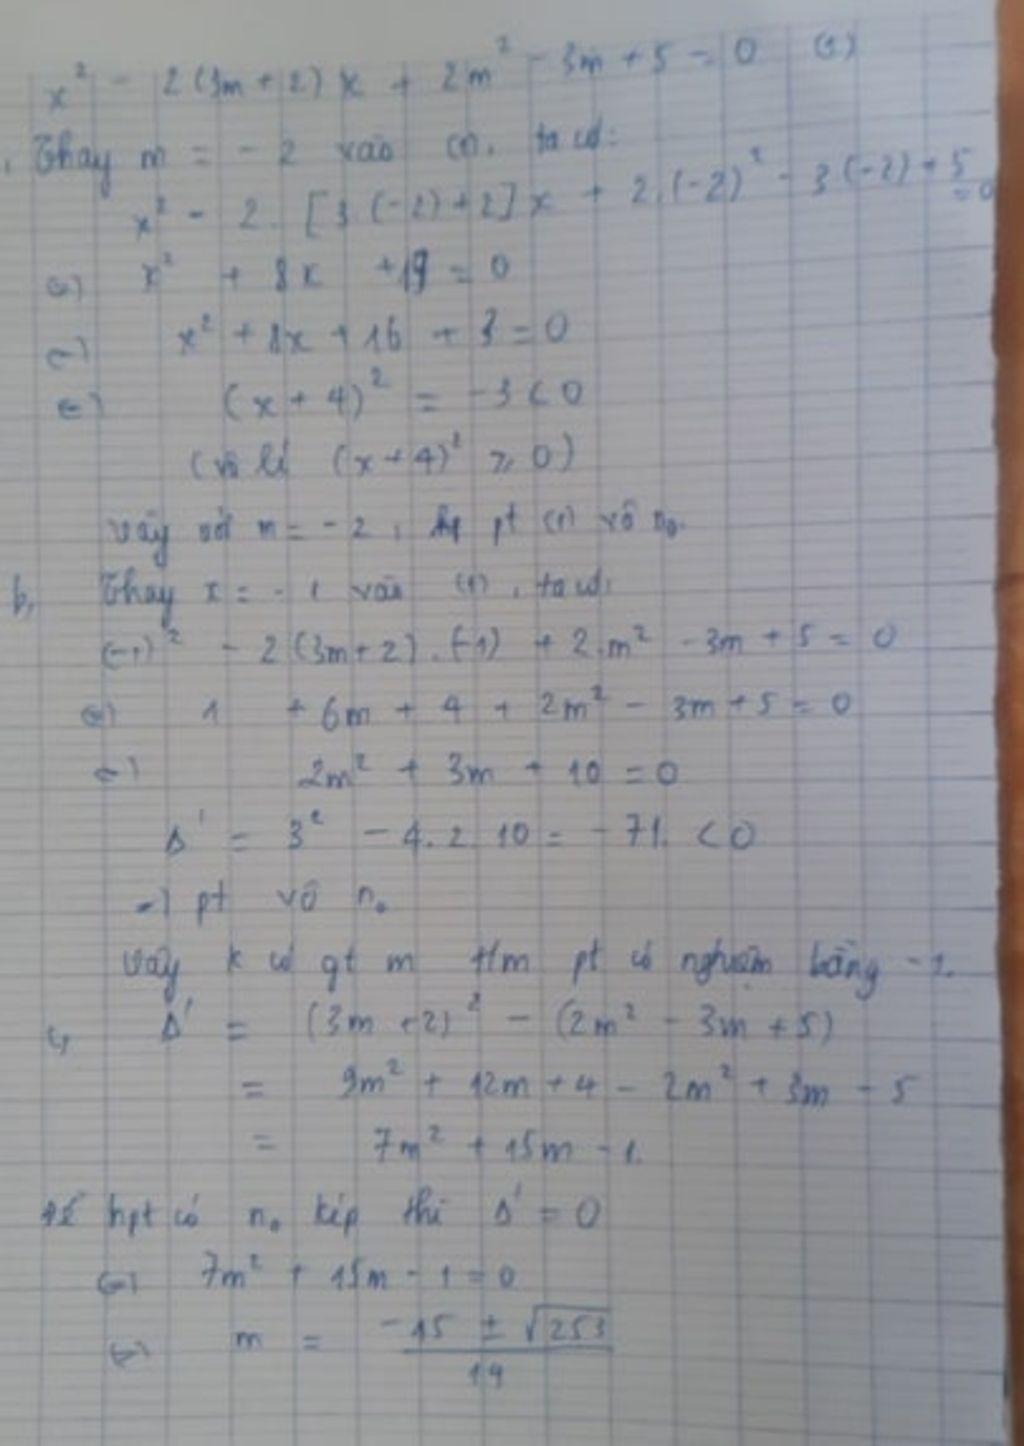 x² - 2(3m + 2)x + 2m² - 3m + 5 = 0 (1)
Thay m = - 2 vào (1), ta có:
x² - 2. [3(-2)+2]x + 2.(-2)² - 3(-2) + 5 = 0
(=) x² + 8x + 19 = 0
(=) x² + 8x + 16 + 3 = 0
(=) (x + 4)² = -3 < 0
(vô lí (x+4)² ≥ 0)
Vậy với m = - 2, pt (1) vô n₀.
b, Thay x = - 1 vào (1), ta có:
(-1)² - 2(3m+2).(-1) + 2.m² - 3m + 5 = 0
(=) 1 + 6m + 4 + 2m² - 3m + 5 = 0
(=) 2m² + 3m + 10 = 0
Δ' = 3² - 4.2 10 = - 71. < 0
=) pt vô n₀
Vậy k có gt m t/m pt có nghiệm bằng -1.
c, Δ' = (3m +2)² - (2m² - 3m + 5)
= 9m² + 12m + 4 - 2m² + 3m - 5
= 7m² + 15m - 1.
Để hpt có n₀ kép thì Δ' = 0
(=) 7m² + 15m - 1 = 0
(=) m = (-15 ± √253)/14